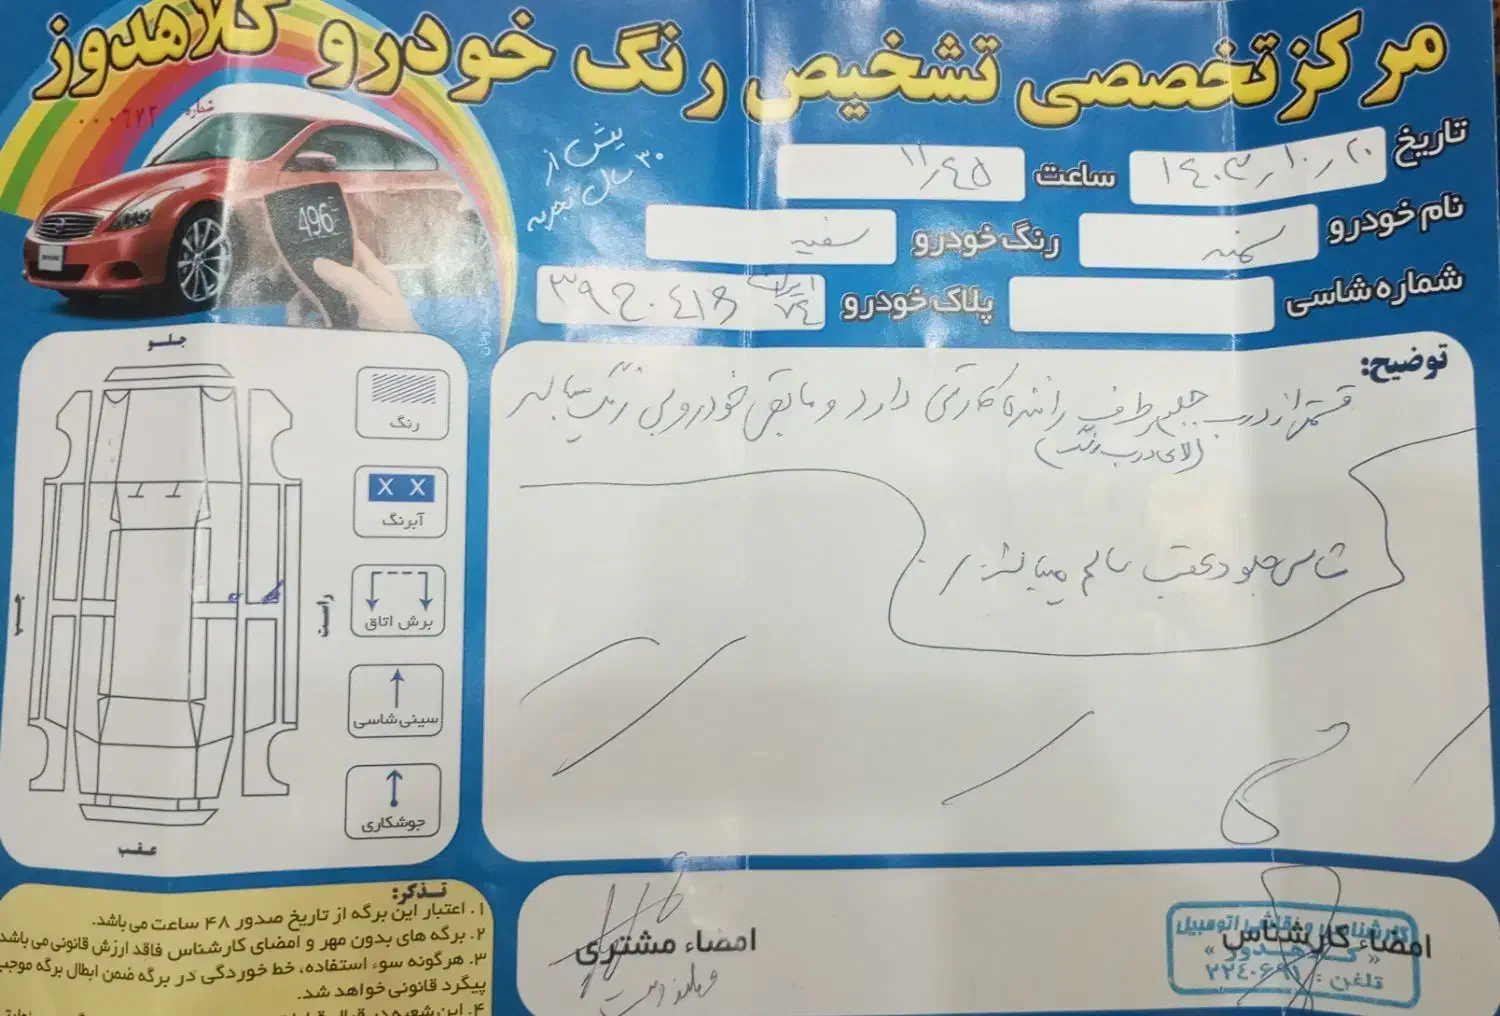 مرکز تخصصی تشخیص رنگ خودرو کلاهدوز
شماره ۰۰۰۶۷۲
بیش از
۳۰ سال تجربه
تاریخ ۱۴۰۳/۱۰/۲۰ ساعت ۱۱/۴۵
نام خودرو سمند رنگ خودرو سفید
شماره شاسی پلاک خودرو ایران ۷۴
496
توضیح:
قسمتی از درب جلو طرف راننده کارتی دارد و مابقی خودرو بی رنگ میباشد
(لای درب رنگ)
شاسی جلو و عقب سالم میباشد
جلو
رنگ
X X
آبرنگ
برش اتاق
سینی شاسی
جوشکاری
چپ
راست
عقب
تذکر:
۱. اعتبار این برگه از تاریخ صدور ۴۸ ساعت می باشد.
۲. برگه های بدون مهر و امضای کارشناس فاقد ارزش قانونی می باشد
۳. هرگونه سوء استفاده، خط خوردگی در برگه ضمن ابطال برگه موجب
پیگرد قانونی خواهد شد.
۴. این شعبه در قبال
امضاء مشتری
امضاء کارشناس
کارشناسی و نقاشی اتومبیل
« کلاهدوز »
تلفن: ۲۲۴۰۶۹۱